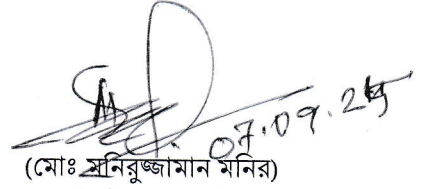 07.09.25
(মোঃ মনিরুজ্জামান মনির)